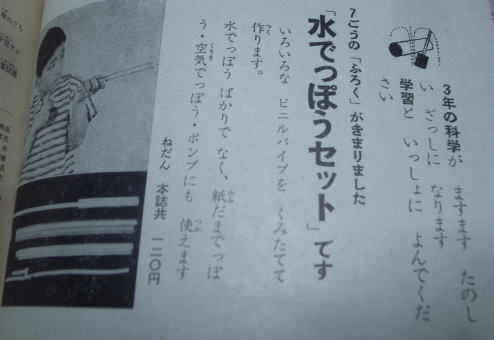 3年の科学が ますます たのし
い ざっしに なります
学習と いっしょに よんでくだ
さい
7ごうの「ふろく」がきまりました
「水でっぽうセット」です
いろいろな ビニルパイプを くみたてて
作ります。
水でっぽう ばかりで なく、紙だまでっぽ
う・空気でっぽう・ポンプにも 使えます
ねだん 本誌共 一二〇円